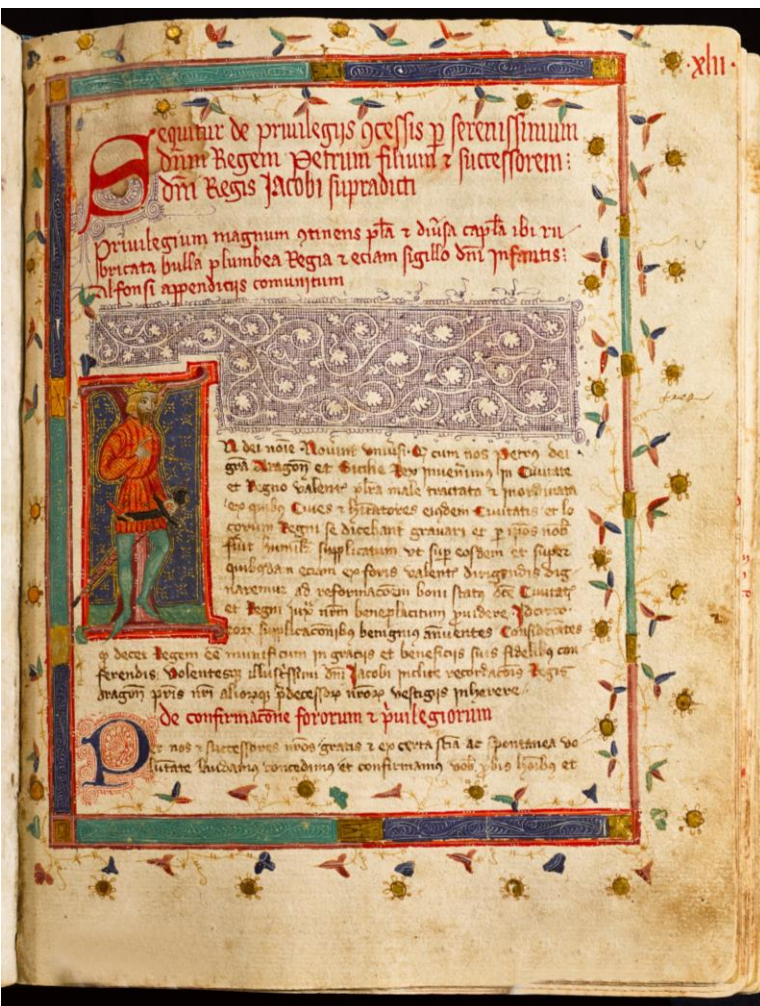 ·xlii·
Sequitur de priuilegijs ꝯcessis ꝑ serenissimum
dn̄m Regem Petrum filium ⁊ successorem :
dn̄i Regis Jacobi supradicti
Priuilegium magnum ꝯtinens pl̄a ⁊ diũsa capl̄a ibi ru
bricata bulla plumbea Regia ⁊ eciam sigillo dn̄i Infantis :
Alfonsi appendicijs comunitum
In dei noīe Nouint vniũsi · Q̄ cum nos Petrus dei
gr̄a Aragon̄ et Sicilie Rex inuenim̄s in Ciuitate
et Regno valent̄ pl̄ra male tractata ⁊ inordinata
ex quibꝰ Ciues ⁊ h̄itatores eiusdem Ciuitatis et lo
corum Regni se dicebant grauari et ꝑ ip̄os nob̄
fuit humilit̄ supplicatum vt suꝑ eisdem et super
quibusdam eciam ex foris valent̄ dirigendis dig
naremur ad reformac̄oem boni status dc̄e Ciuitat̄
et Regni iux̄ nr̄m beneplacitum ꝓuidere · Idcirco
eoꝝ supplicac̄onibꝰ benignius annuentes Considerantes
ꝙ decet Regem ēe munificum in gracijs et beneficijs suis fidelibꝰ con
ferendis volentesqꝫ illustrissimi dn̄i Jacobi inclite recordac̄ōis Regis
Aragon̄ pr̄is nr̄i aliorꝫqꝫ p̄decessoꝝ nr̄oꝝ vestigijs inherere ·
De confirmac̄one fororum ⁊ p̄uilegiorum
Per nos ⁊ successores nr̄os gratis ⁊ ex certa sc̄ia ac spontanea vo
luntate laudamꝰ concedimꝰ et confirmamꝰ vob̄ ꝓbis hōibus et